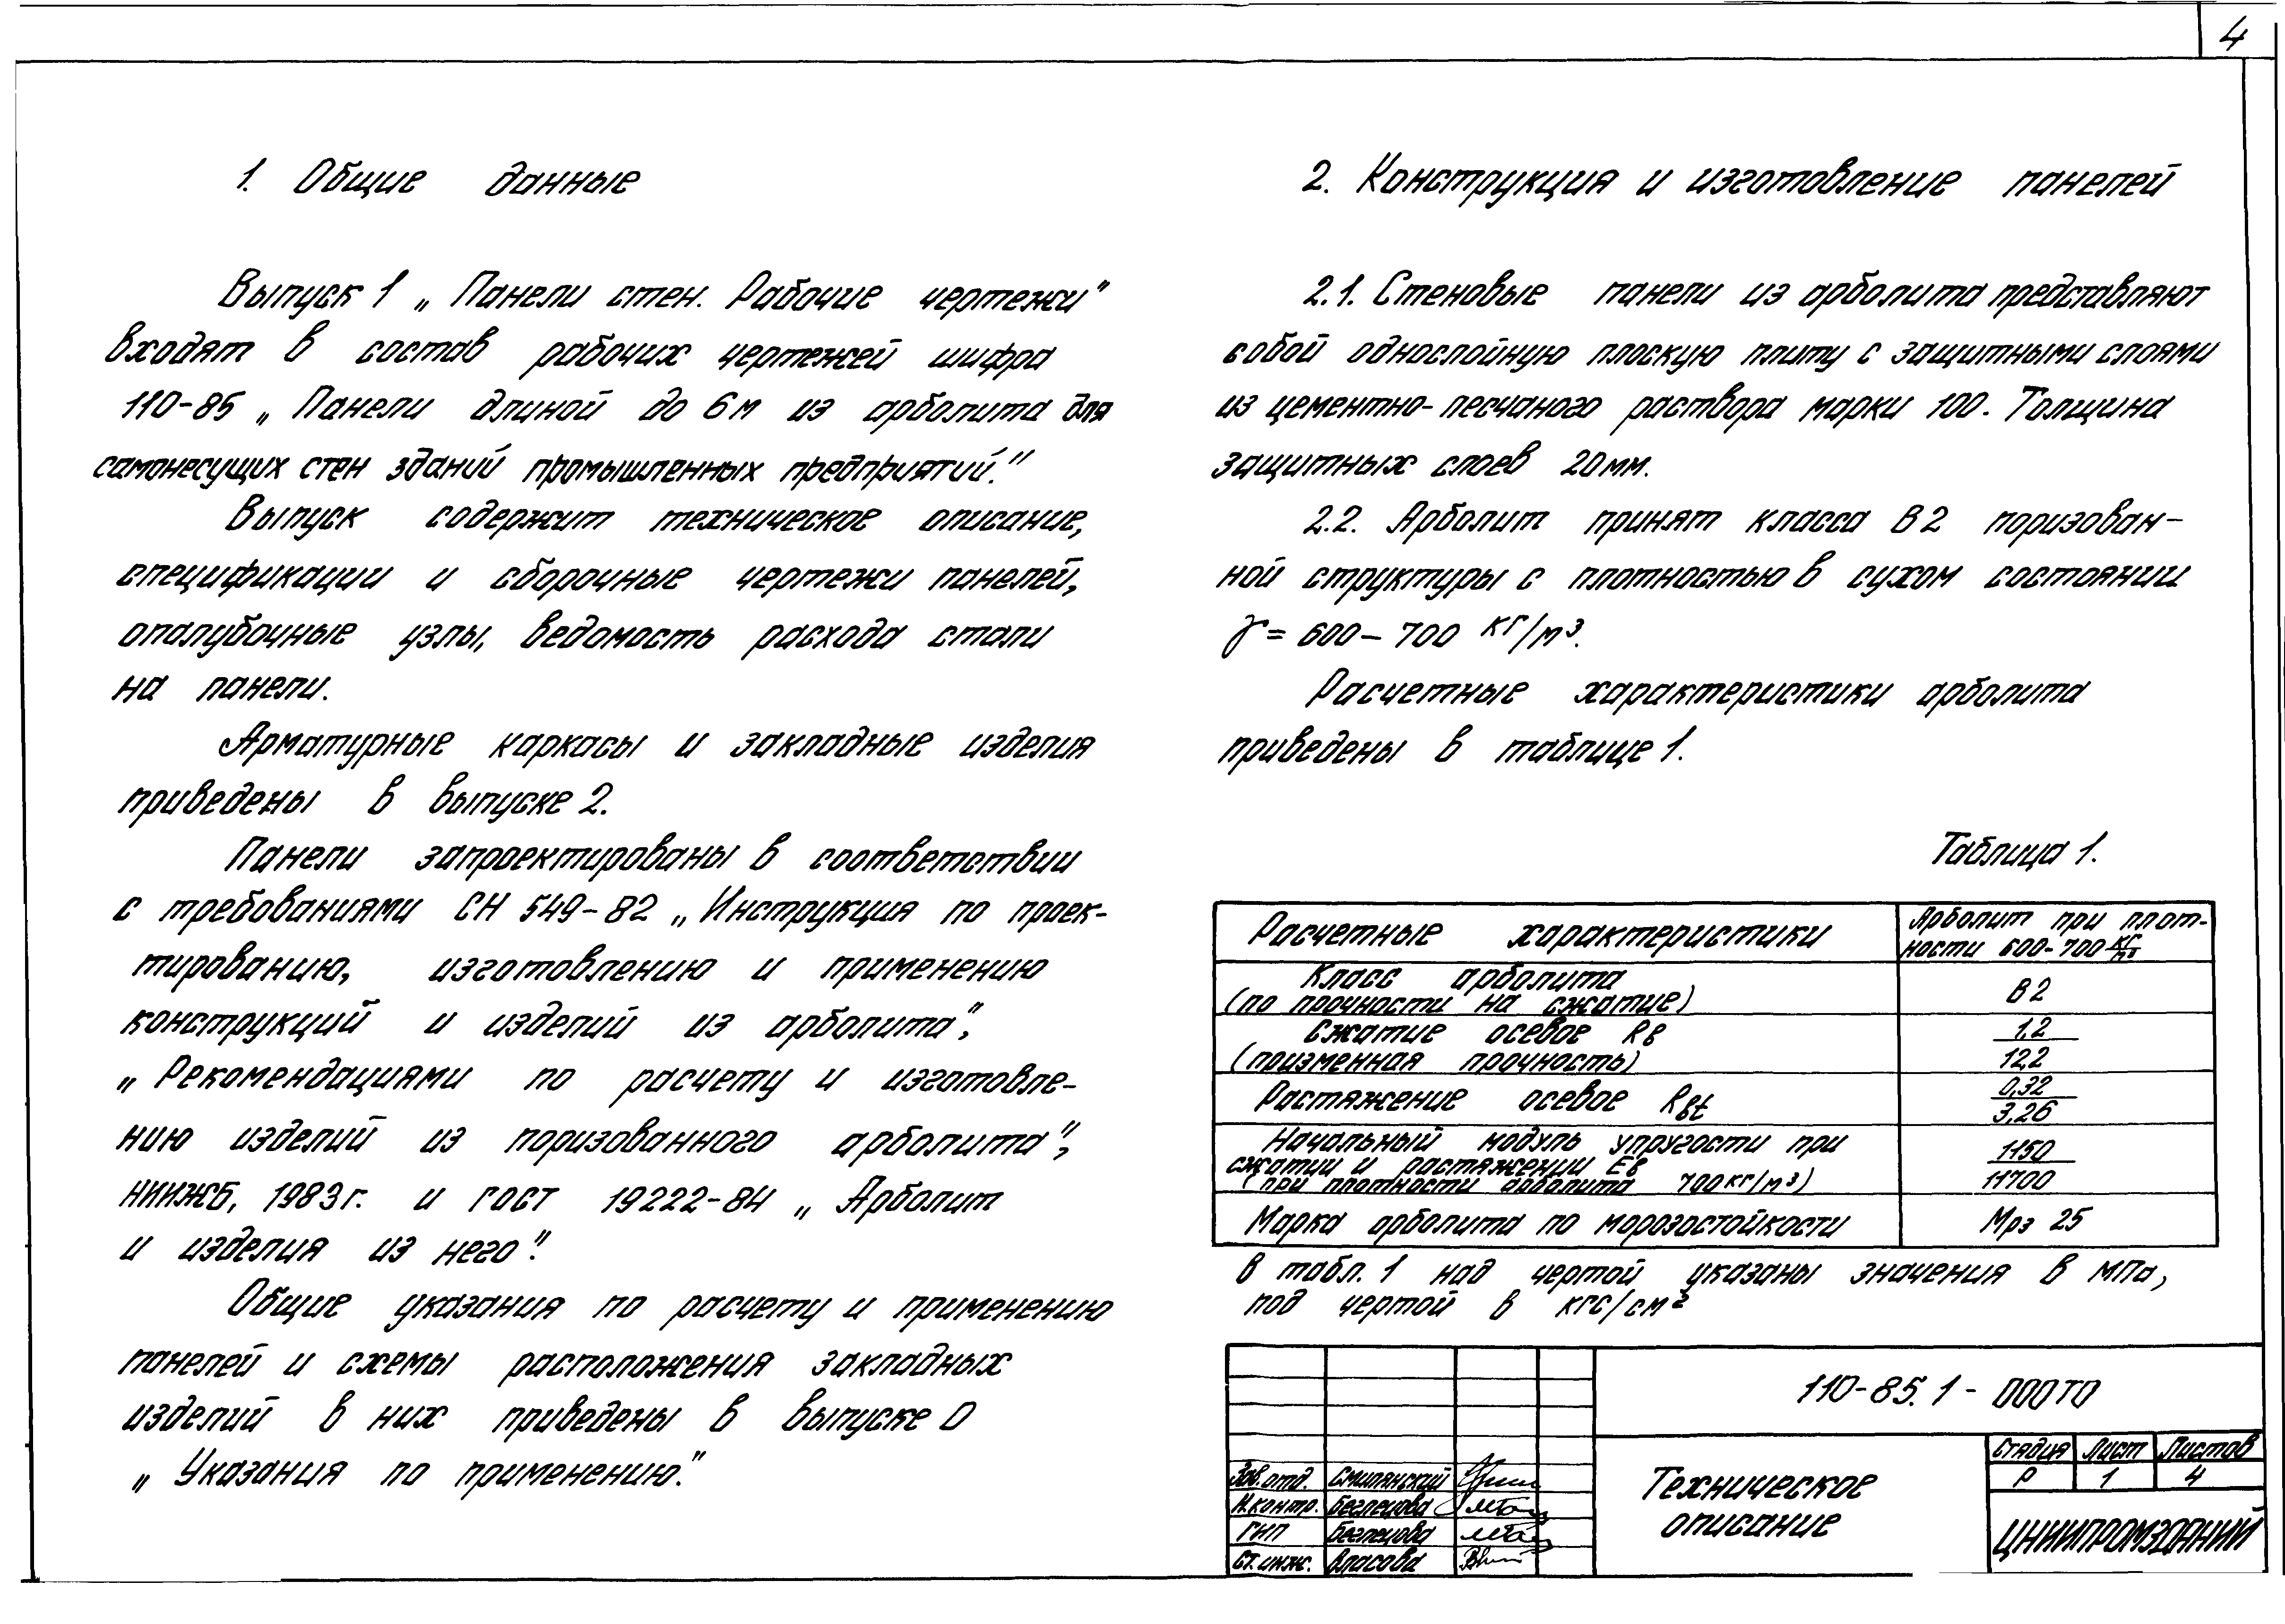 4
1. Общие данные
Выпуск 1 „Панели стен. Рабочие чертежи"
входят в состав рабочих чертежей шифра
110-85 „Панели длиной до 6м из арболита для
самонесущих стен зданий промышленных предприятий."
Выпуск содержит техническое описание,
спецификации и сборочные чертежи панелей,
опалубочные узлы, ведомость расхода стали
на панели.
Арматурные каркасы и закладные изделия
приведены в выпуске 2.
Панели запроектированы в соответствии
с требованиями СН 549-82 „Инструкция по проек-
тированию, изготовлению и применению
конструкций и изделий из арболита",
„Рекомендациями по расчету и изготовле-
нию изделий из поризованного арболита",
НИИЖБ, 1983г. и ГОСТ 19222-84 „Арболит
и изделия из него".
Общие указания по расчету и применению
панелей и схемы расположения закладных
изделий в них приведены в выпуске 0
„Указания по применению."
2. Конструкция и изготовление панелей
2.1. Стеновые панели из арболита представляют
собой однослойную плоскую плиту с защитными слоями
из цементно-песчаного раствора марки 100. Толщина
защитных слоев 20мм.
2.2. Арболит принят класса В2 поризован-
ной структуры с плотностью в сухом состоянии
γ = 600 – 700 кг/м³.
Расчетные характеристики арболита
приведены в таблице 1.
Таблица 1.
Расчетные характеристики
Арболит при плот-
ности 600-700 кг/м³
Класс арболита
(по прочности на сжатие)
В2
Сжатие осевое Rв
(призменная прочность)
1,2
12,2
Растяжение осевое Rвt
0,32
3,26
Начальный модуль упругости при
сжатии и растяжении Ев
(при плотности арболита 700кг/м³)
1150
11700
Марка арболита по морозостойкости
Мрз 25
В табл. 1 над чертой указаны значения в МПа,
под чертой в кгс/см²
110-85.1 - 000ТО
Техническое
описание
Стадия Лист Листов
Р 1 4
ЦНИИПРОМЗДАНИЙ
Зав. отд. Смилянский
Н.контр. Беглецова
ГИП Беглецова
Ст. инж. Власова